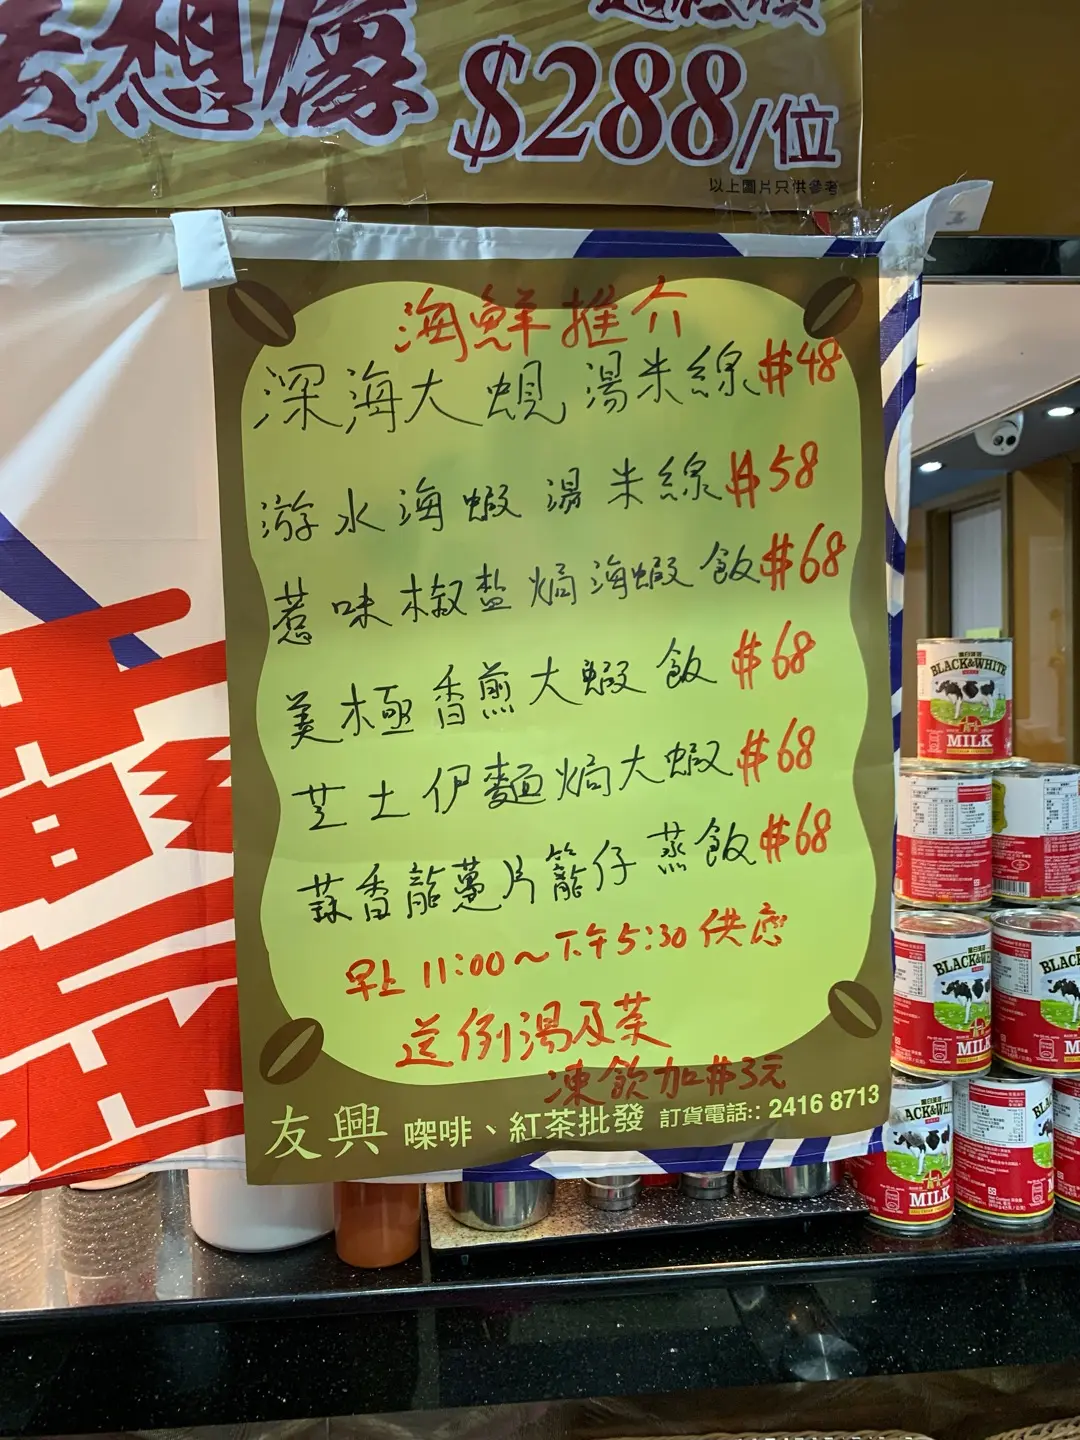 想像
$288/位
以上圖片只供參考
海鮮推介
深海大蜆湯米線 $48
游水海蝦湯米線 $58
惹味椒盐焗海蝦飯 $68
美極香煎大蝦飯 $68
芝士伊麵焗大蝦 $68
蒜香龍躉片籠仔蒸飯 $68
早上 11:00~下午5:30 供應
送例湯及茶
凍飲加$3元
友興 咖啡、紅茶批發 訂貨電話:: 2416 8713
BLACK&WHITE
MILK
BLACK&WHITE
MILK
BLACK&WHITE
MILK